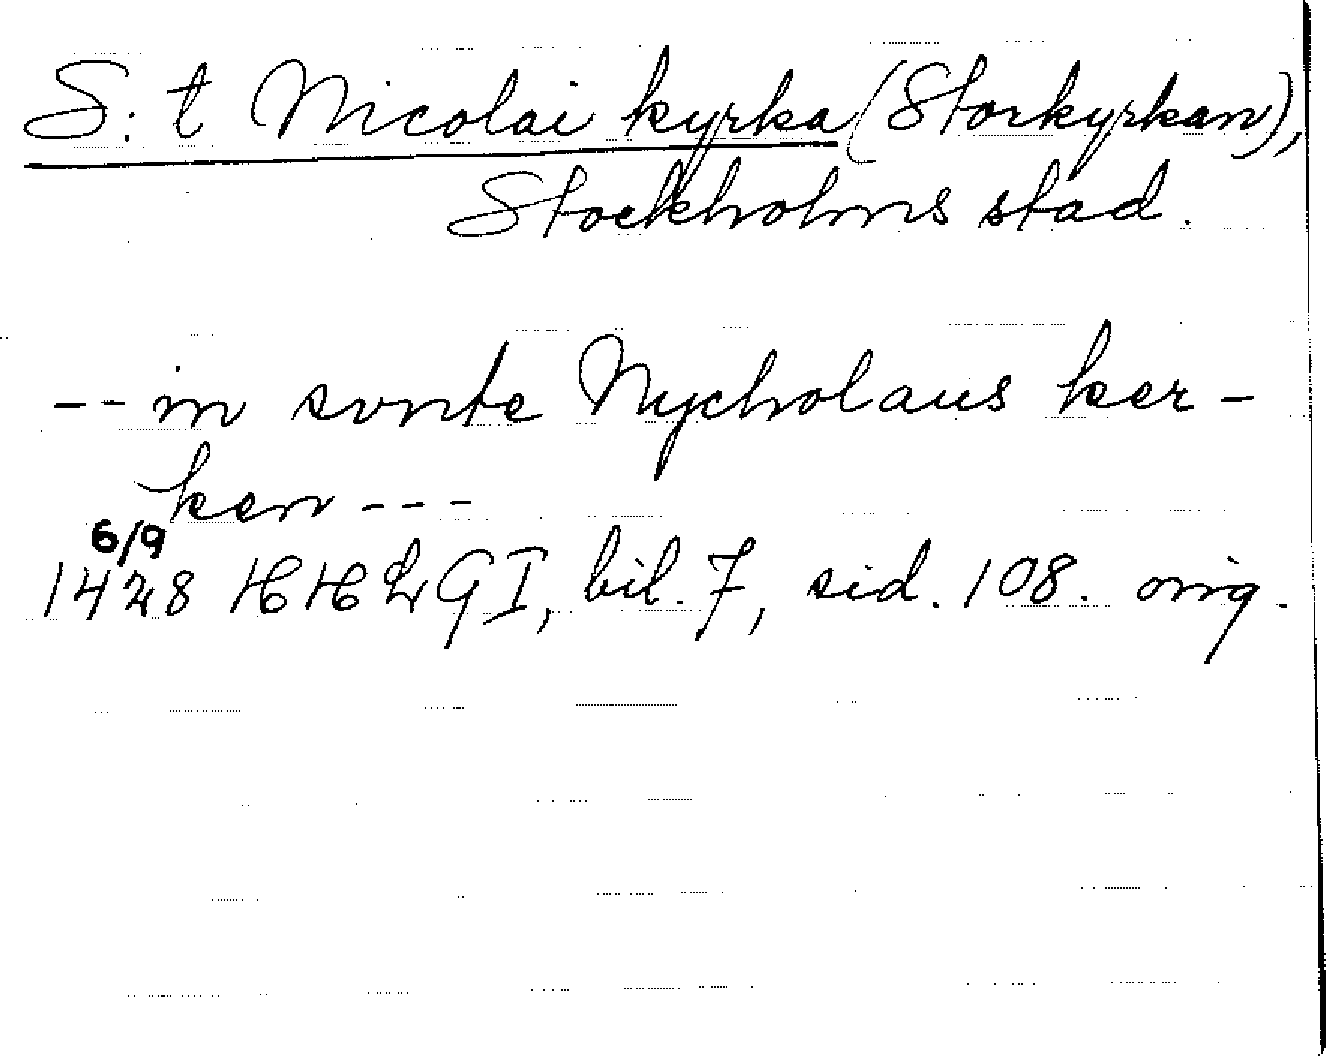 S:t Nicolai kyrka (Storkyrkan),
Stockholms stad.
-- in sunte Nycholaus ker-
ken ---
6/9
1428 HHLG I, bil. 7, sid. 108. orig.